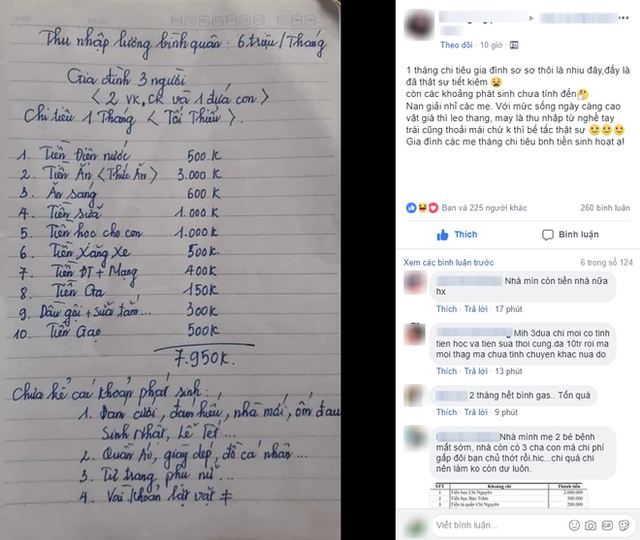 Thu nhập lương bình quân: 6 triệu/Tháng
Gia đình 3 người
< 2 VK, CK và 1 đứa con >
Chi tiêu 1 Tháng < Tối Thiểu >.
1. Tiền Điện nước 500.K
2. Tiền Ăn <Thức Ăn> 3.000 K
3. Ăn sáng 600 K
4. Tiền sữa 1.000 K
5. Tiền học cho con 1.000 K
6. Tiền Xăng Xe 500K
7. Tiền ĐT + Mạng 400K
8. Tiền Ga 150K
9. Dầu gội + sữa tắm... 300K
10. Tiền Gạo 500K
7.950K.
Chưa kể các khoản phát sinh:
1. Đám cưới, đám hiếu, nhà mới, ốm đau
Sinh Nhật, Lễ Tết...
2. Quần Áo, giày dép, đồ cá nhân...
3. Tư trang phụ nữ...
4. Vài khoản lặt vặt ≠
Theo dõi · 10 giờ ·
1 tháng chi tiêu gia đình sơ sơ thôi là nhiu đây,đấy là
đã thật sự tiết kiệm 😫
còn các khoảng phát sinh chưa tính đến🤔
Nan giải nhỉ các mẹ. Với mức sống ngày càng cao
vật giá thì leo thang, may là thu nhập từ nghề tay
trái cũng thoải mái chứ k thì bế tắc thật sự 😅😅😅
Gia đình các mẹ tháng chi tiêu bnh tiền sinh hoạt ạ!
Bạn và 225 người khác 260 bình luận
Thích Bình luận
Xem các bình luận trước 6 trong số 124
Nhà mìn còn tiền nhà nữa
hx
Thích · Trả lời · 17 phút
Mih 3dua chi moi co tinh
tien học va tien sua thoi cung.da 10tr roi ma
moi thag ma chua tinh chuyen khac nua do
Thích · Trả lời · 13 phút
2 tháng hết bình gas.. Tốn quá
Thích · Trả lời · 9 phút
Nhà mình mẹ 2 bé bệnh
mất sớm, nhà còn có 3 cha con mà chi phí
gấp đôi bạn chủ thớt rồi.hic...chi quá chi
nên làm ko còn dư luôn.
STT Khoảng chi Thành tiền
1 Tiền học Chí Nguyên 2.000.000
2 Tiền học Bảo Trâm 500.000
3 Tiền tạ quần Chí Nguyên 200.000
Viết bình luận...